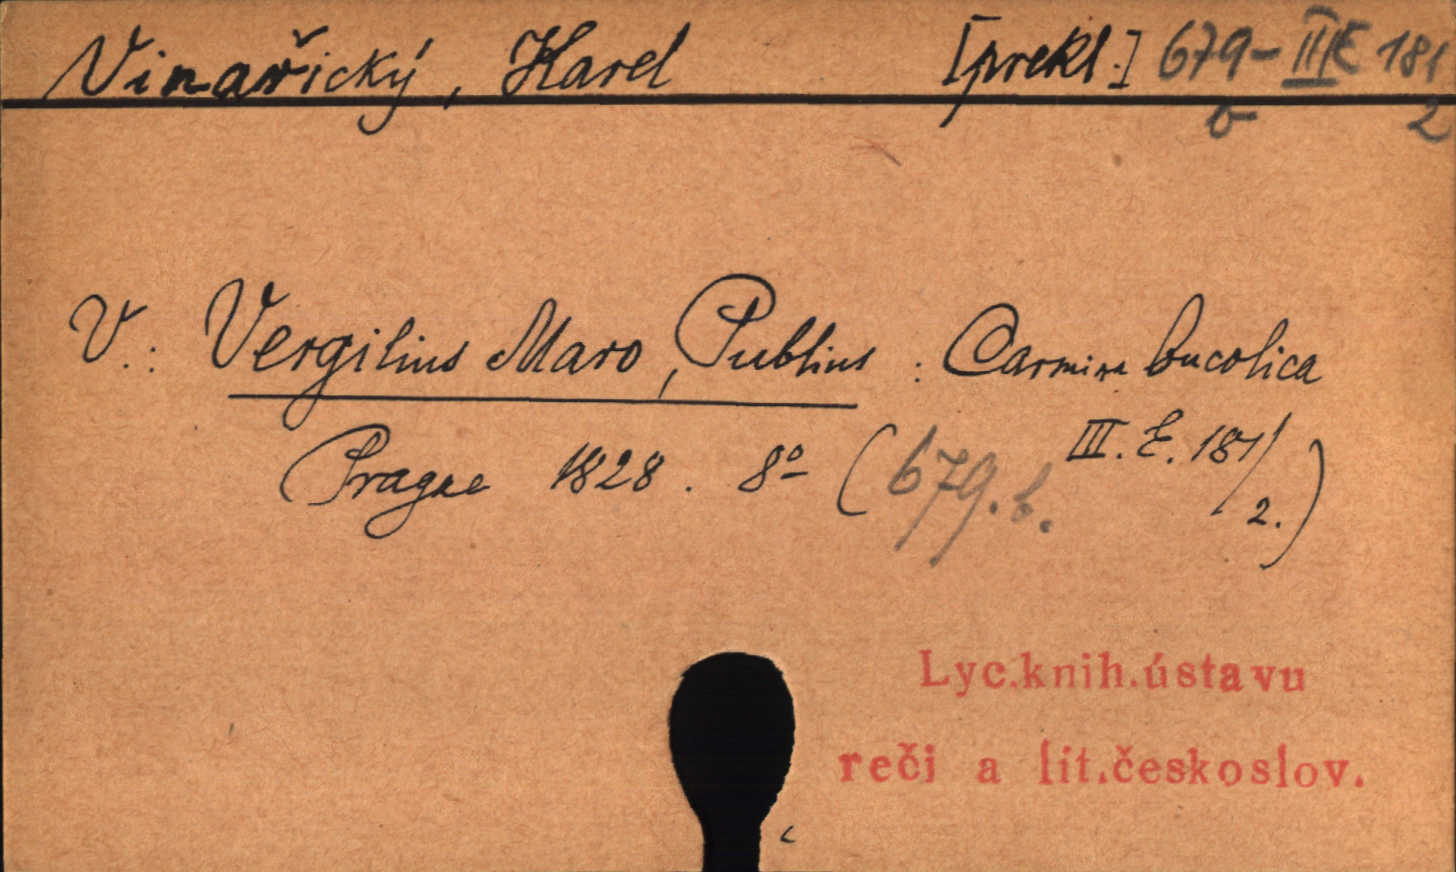 Vinařický, Karel [prekl.] 679- III E 181
b 2
V.: Vergilius Maro, Publius: Carmina bucolica
Pragae 1828. 8º (679.b. III. E. 181/2.)
Lyc.knih.ústavu
reči a lit.českoslov.